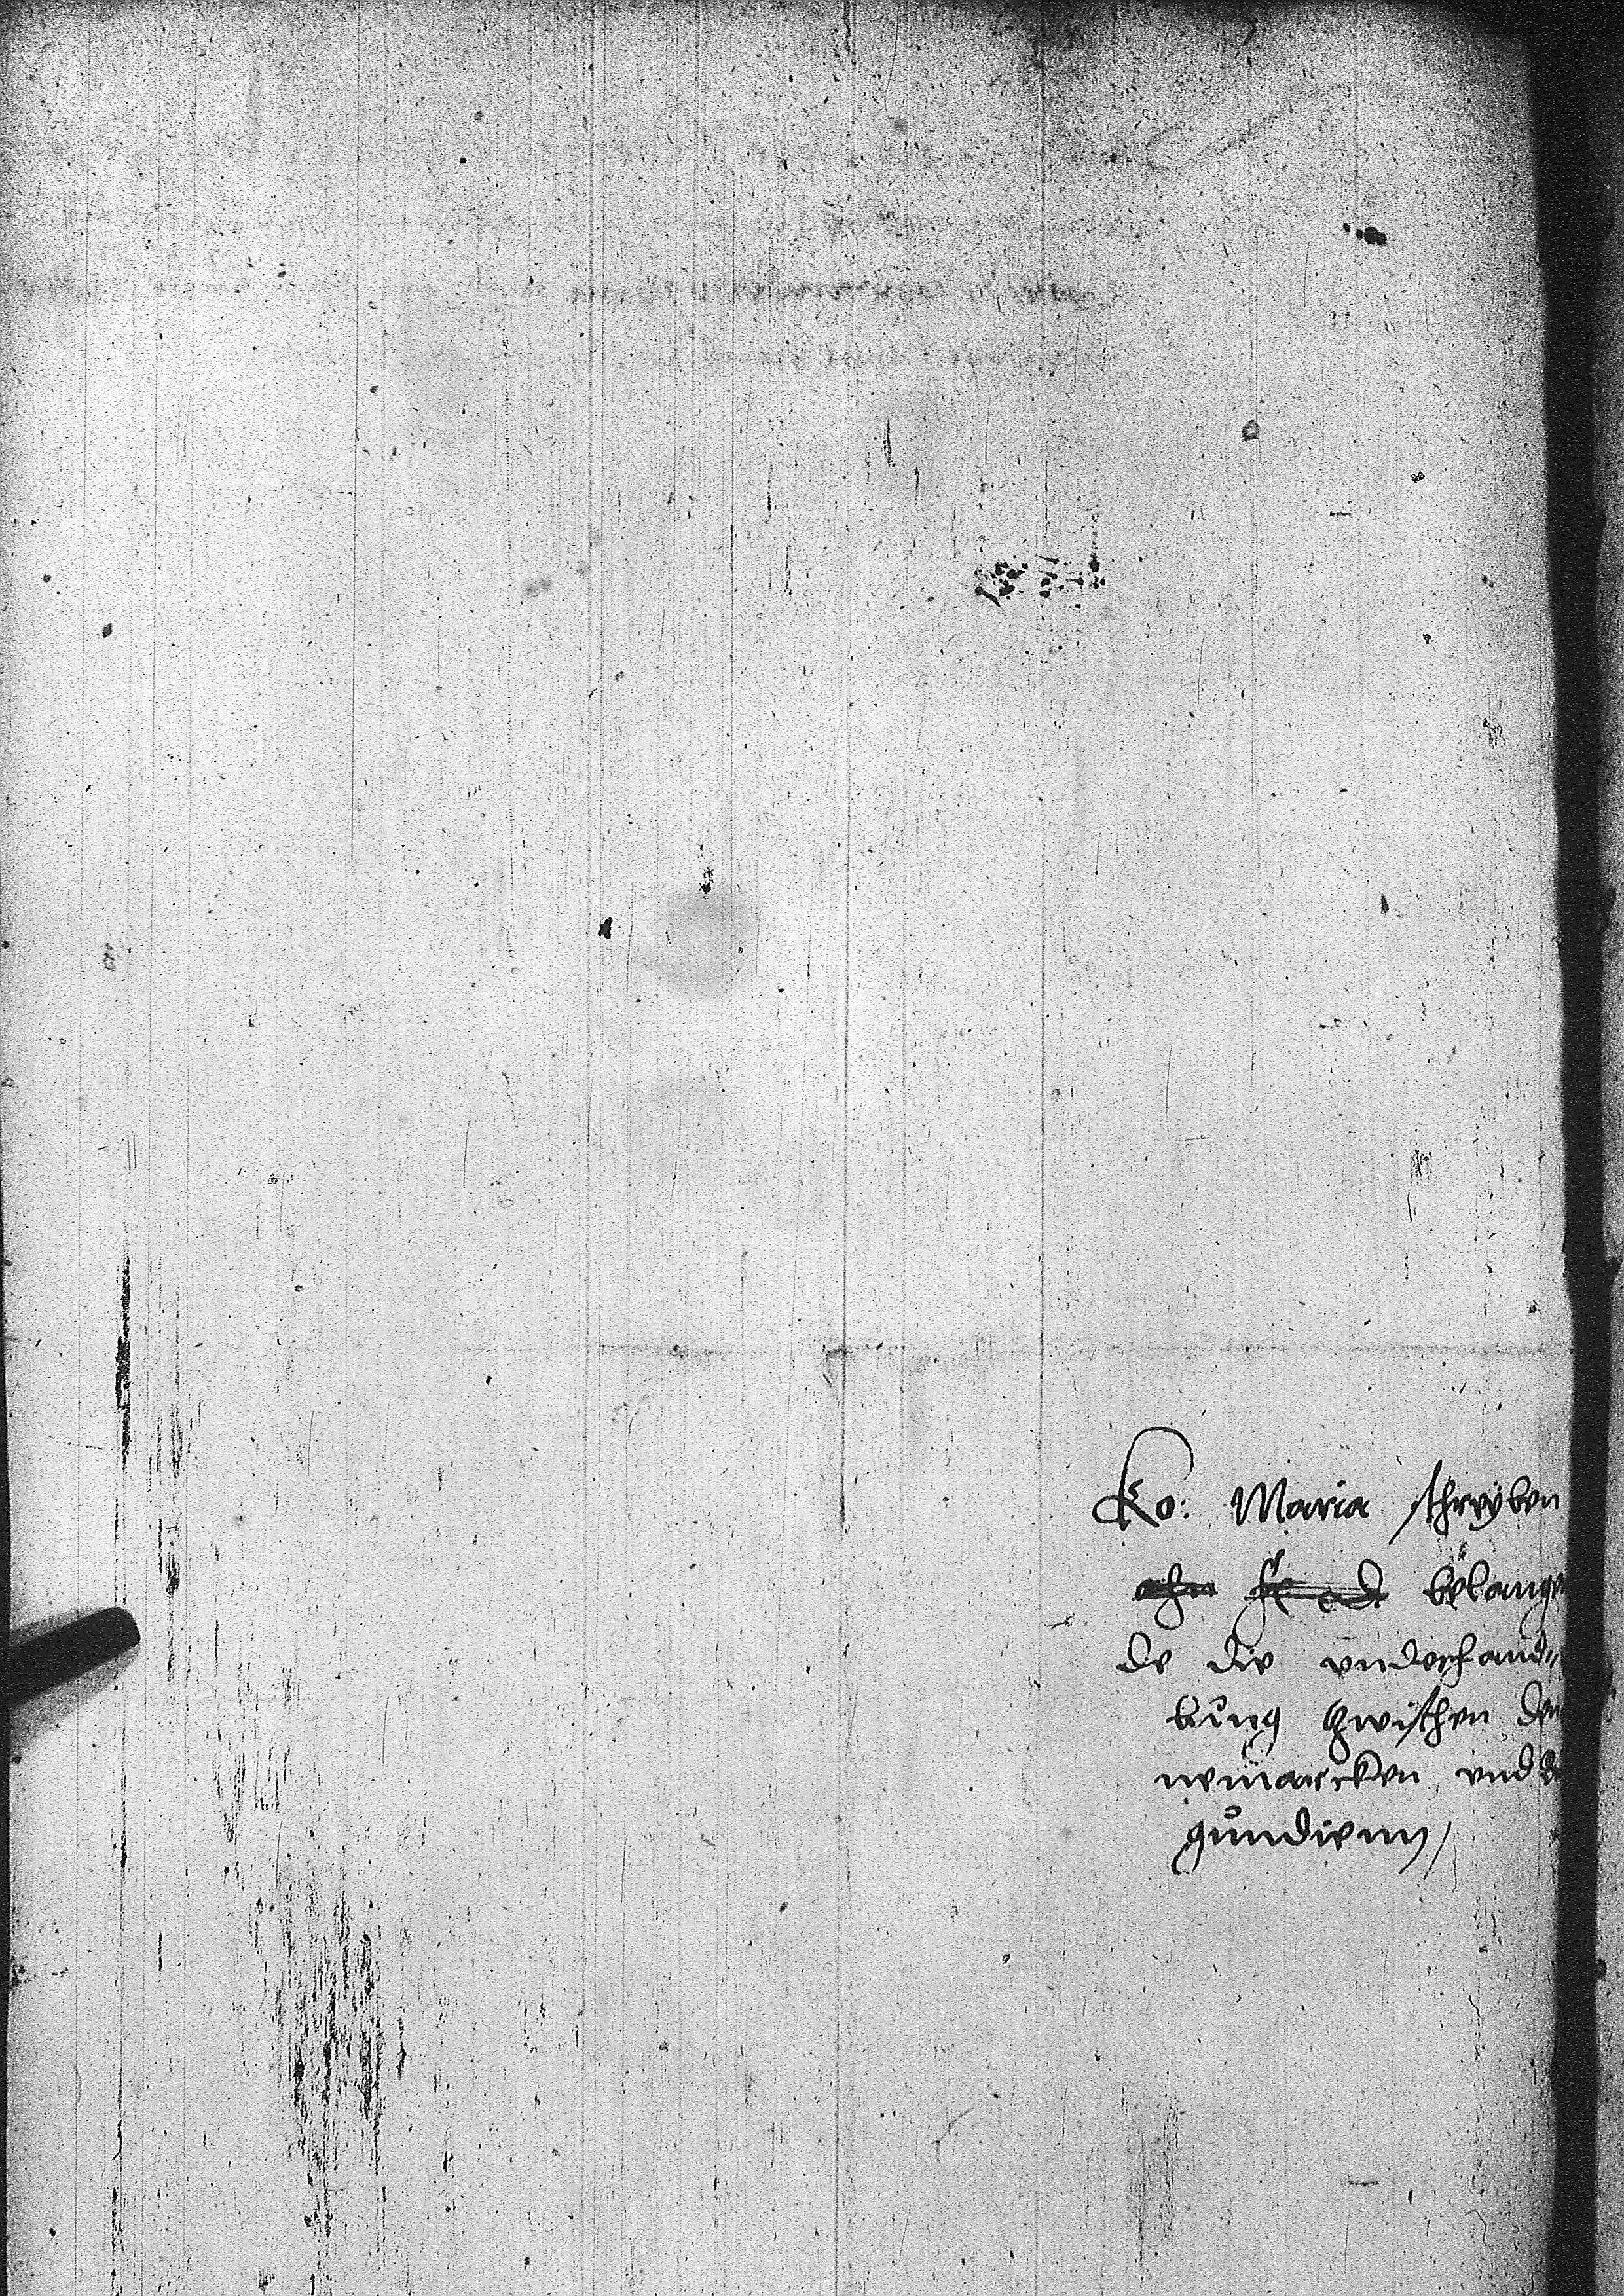 Ko: Maria schreyben
ahn belangen
de die underhand„
lung zwischen Den
nemarcken und Bur
gundienn /